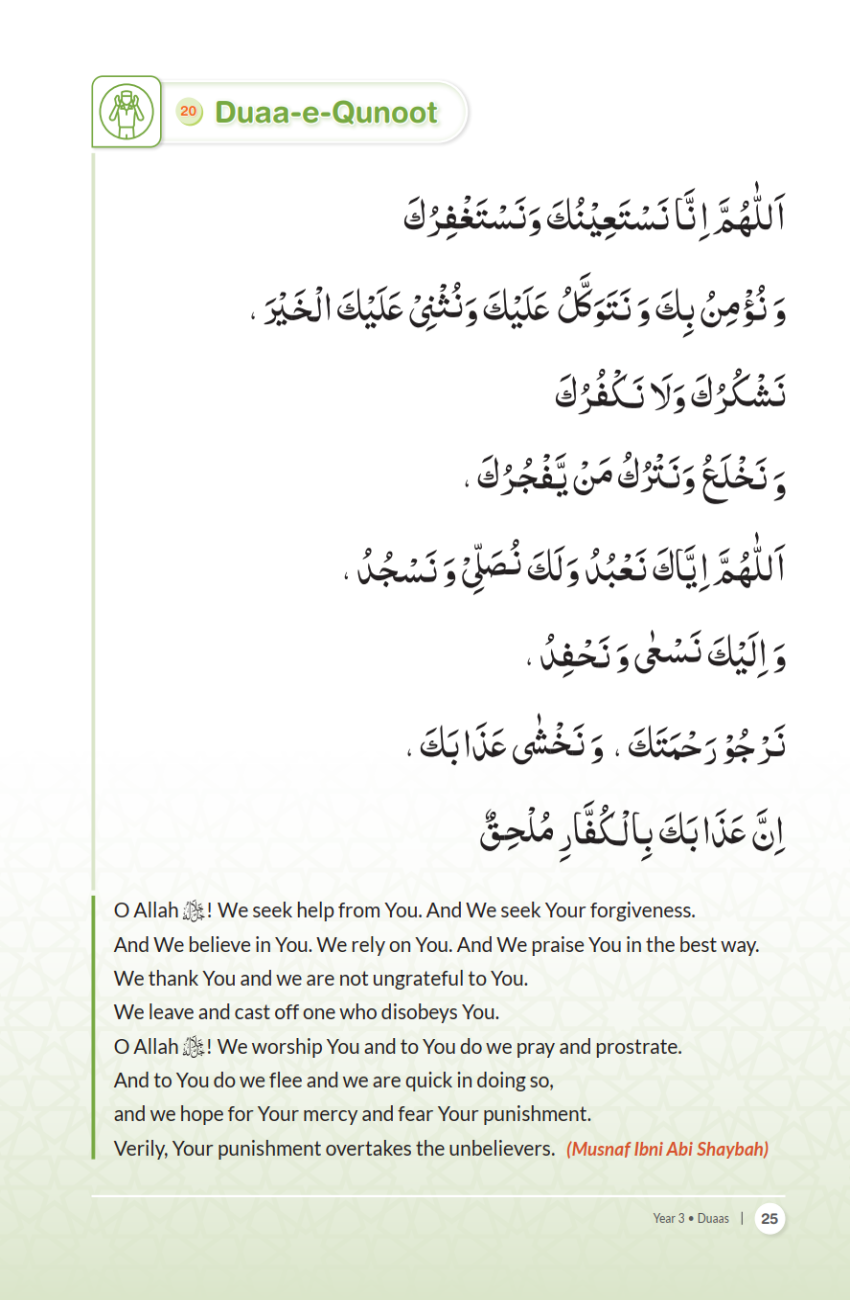 20 Duaa-e-Qunoot
اَللّٰهُمَّ اِنَّا نَسْتَعِيْنُكَ وَنَسْتَغْفِرُكَ
وَ نُؤْمِنُ بِكَ وَ نَتَوَكَّلُ عَلَيْكَ وَنُثْنِيْ عَلَيْكَ الْخَيْرَ ،
نَشْكُرُكَ وَلَا نَكْفُرُكَ
وَ نَخْلَعُ وَنَتْرُكُ مَنْ يَّفْجُرُكَ ،
اَللّٰهُمَّ اِيَّاكَ نَعْبُدُ وَلَكَ نُصَلِّيْ وَ نَسْجُدُ ،
وَ اِلَيْكَ نَسْعٰى وَ نَحْفِدُ ،
نَرْجُوْ رَحْمَتَكَ ، وَ نَخْشٰى عَذَابَكَ ،
اِنَّ عَذَابَكَ بِالْكُفَّارِ مُلْحِقٌ
O Allah ﷻ! We seek help from You. And We seek Your forgiveness.
And We believe in You. We rely on You. And We praise You in the best way.
We thank You and we are not ungrateful to You.
We leave and cast off one who disobeys You.
O Allah ﷻ! We worship You and to You do we pray and prostrate.
And to You do we flee and we are quick in doing so,
and we hope for Your mercy and fear Your punishment.
Verily, Your punishment overtakes the unbelievers. (Musnaf Ibni Abi Shaybah)
Year 3 • Duaas | 25